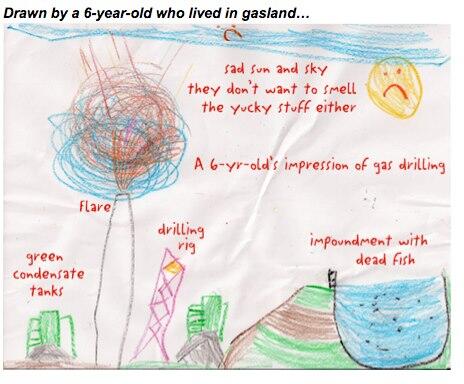 Drawn by a 6-year-old who lived in gasland...
sad sun and sky
they don't want to smell
the yucky stuff either
A 6-yr-old's impression of gas drilling
Flare
drilling
rig
green
condensate
tanks
impoundment with
dead fish